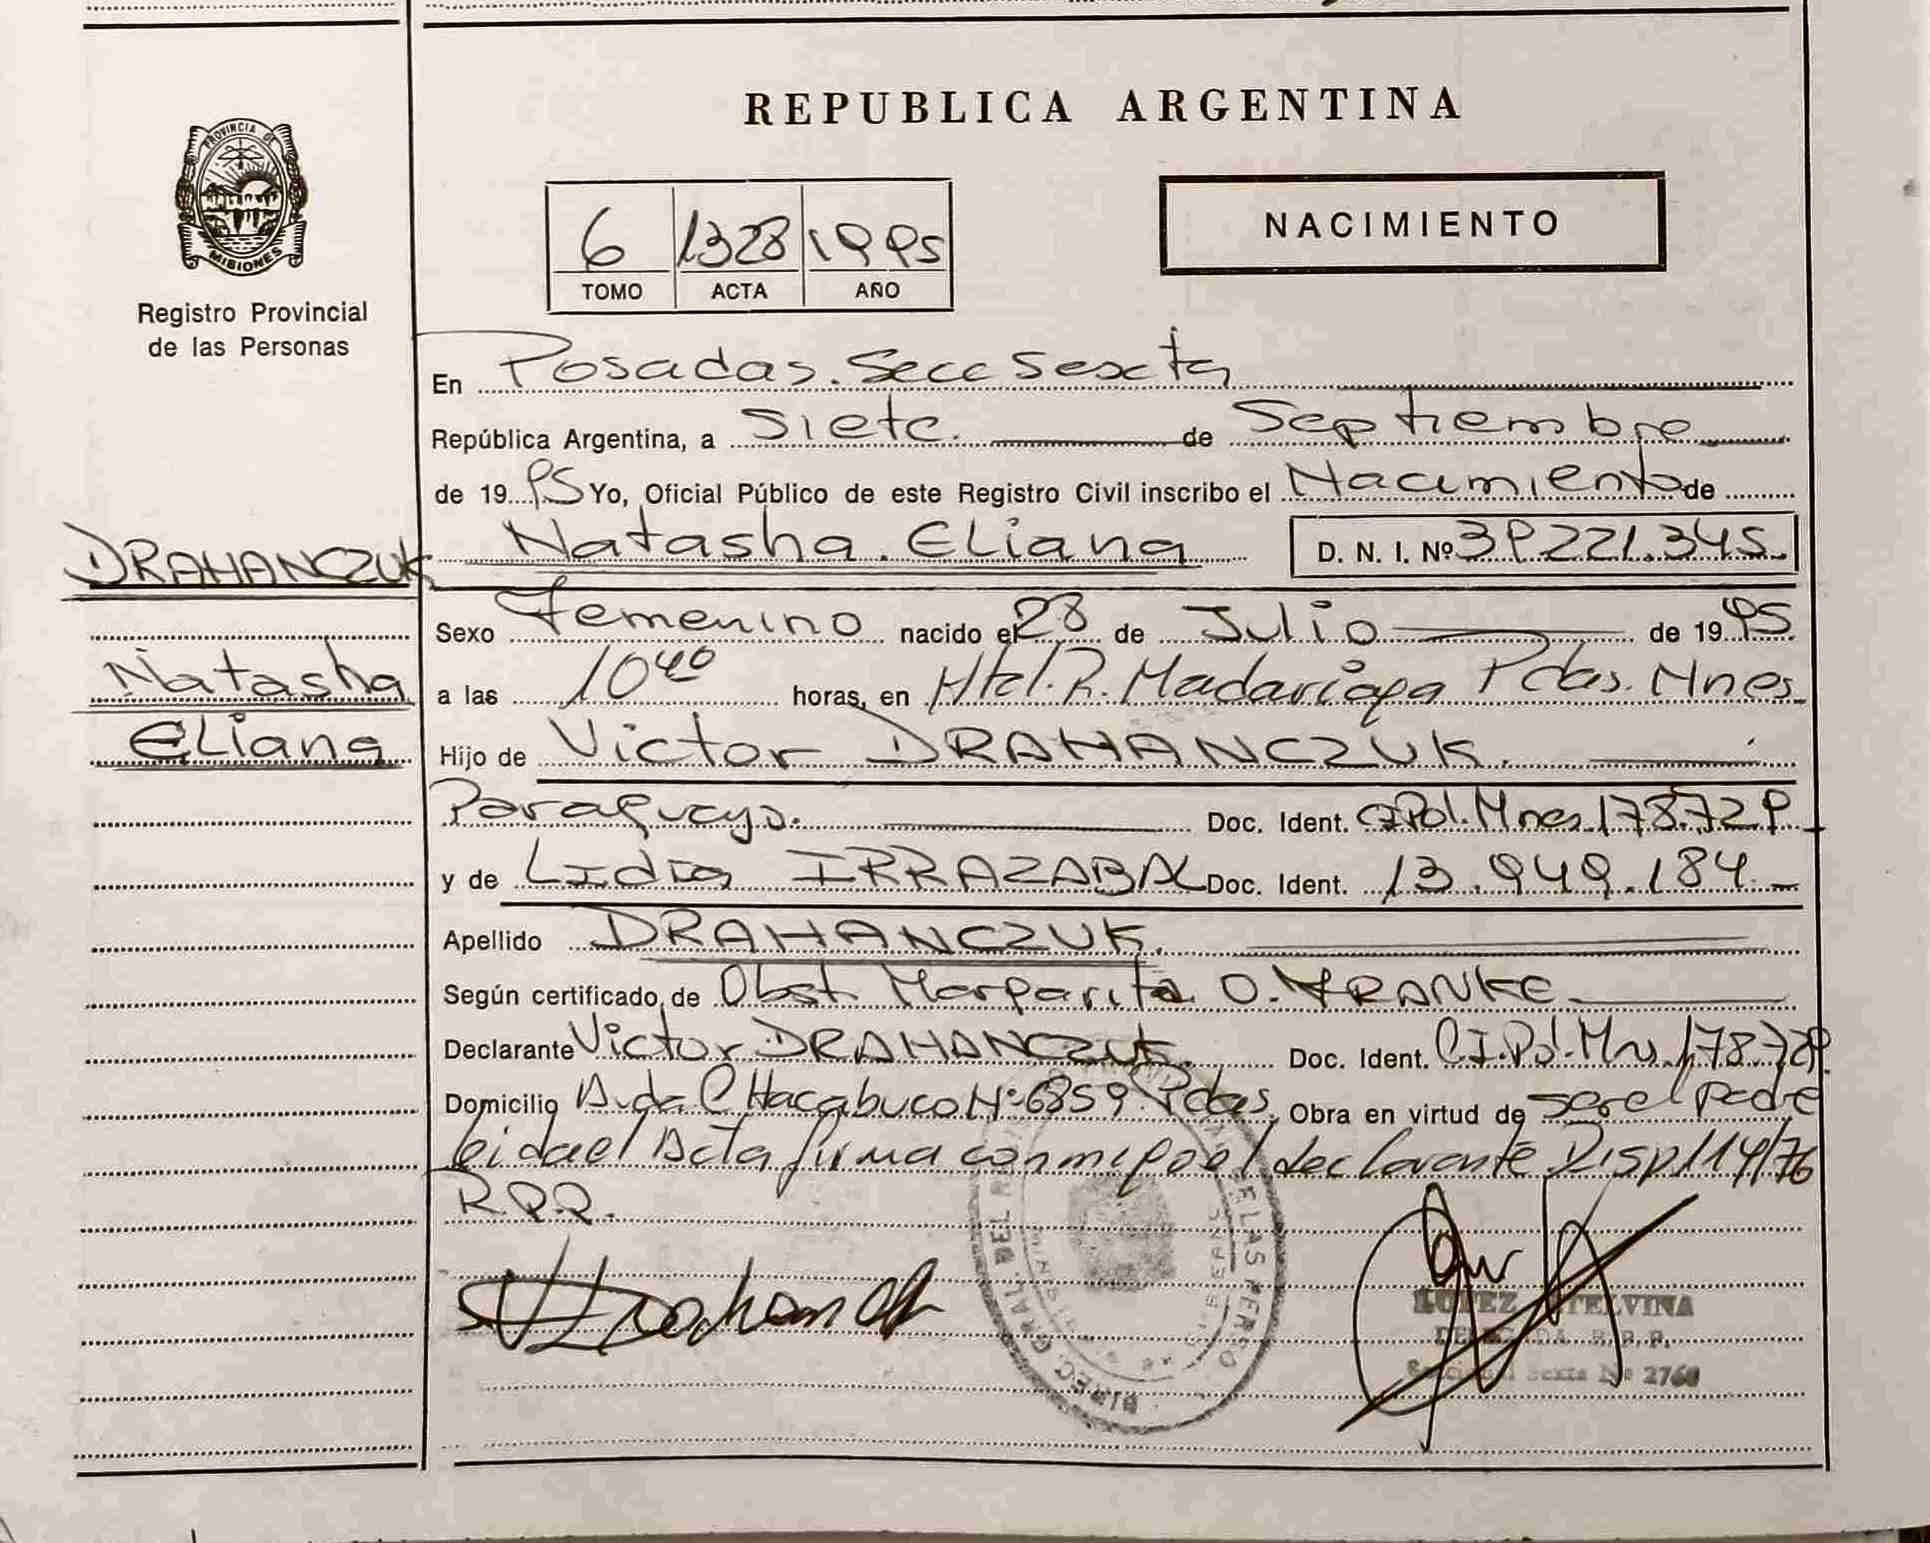 PROVINCIA DE
MISIONES
Registro Provincial
de las Personas
DRAHANCZUK
Natasha
Eliana
REPUBLICA ARGENTINA
6 1328 1995
TOMO ACTA AÑO
NACIMIENTO
En Posadas. Secc Sexta
República Argentina, a Siete. de Septiembre
de 1995 Yo, Oficial Público de este Registro Civil inscribo el Nacimiento de
Natasha. Eliana D. N. I. Nº 39.221.345.
Sexo Femenino nacido el 28 de Julio de 1995.
a las 10 40 horas, en Htal. R. Madariaga Pdas. Mnes.
Hijo de Victor DRAHANCZUK.
Paraguayo. Doc. Ident. C.I.Pol. Mnes. 178.729
y de Lidia IRRAZABAL Doc. Ident. 13.949.184.
Apellido DRAHANCZUK.
Según certificado de Obst. Margarita O. FRANKE.
Declarante Victor DRAHANCZUK. Doc. Ident. C.I.Pol. Mns. 178.729.
Domicilio Avda. CHacabuco Nº 6859. Pdas. Obra en virtud de ser el padre
leida el Acta firma conmigo el declarante Disp. 114/76
R.P.P.
DIREC GRAL DEL DE LAS PERSO
LOPEZ ETELVINA
DELEGADA R.P.P.
Seccional Sexta Nº 2760